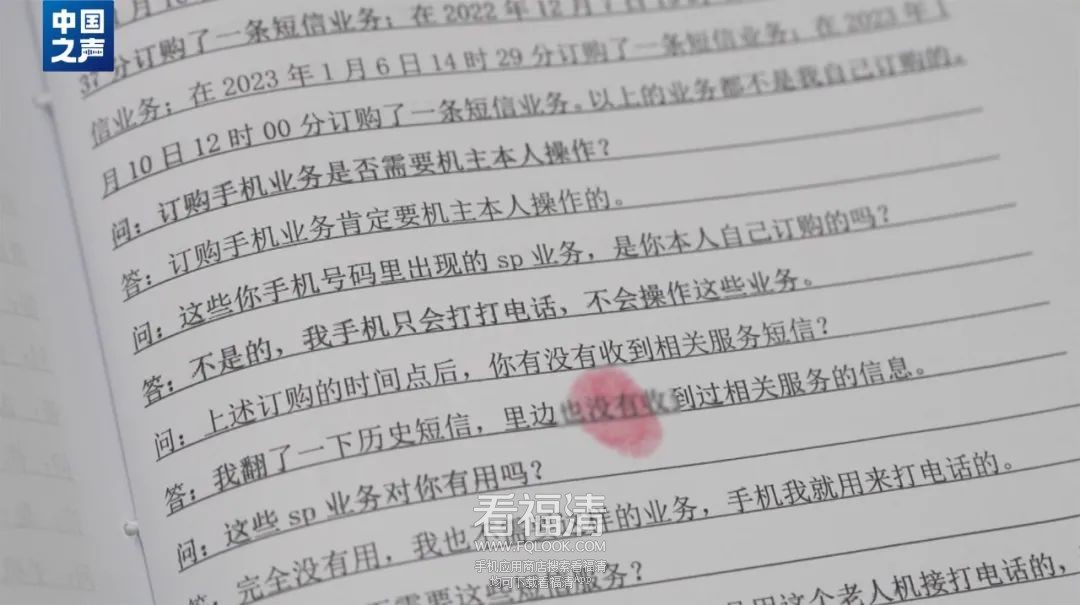 中国之声
37分订购了一条短信业务；在2022年12月7日
信业务；在2023年1月6日14时29分订购了一条短信业务；在2023年1
月10日12时00分订购了一条短信业务。以上的业务都不是我自己订购的。
问：订购手机业务是否需要机主本人操作？
答：订购手机业务肯定要机主本人操作的。
问：这些你手机号码里出现的sp业务，是你本人自己订购的吗？
答：不是的，我手机只会打打电话，不会操作这些业务。
问：上述订购的时间点后，你有没有收到相关服务短信？
答：我翻了一下历史短信，里边也没有收到过相关服务的信息。
问：这些sp业务对你有用吗？
答：完全没有用，我也不需要这样的业务，手机我就用来打电话的。
需要这些短信服务？
用这个老人机接打电话的，
看福清
WWW.FQLOOK.COM
手机应用商店搜索看福清
您可下载看福清APP